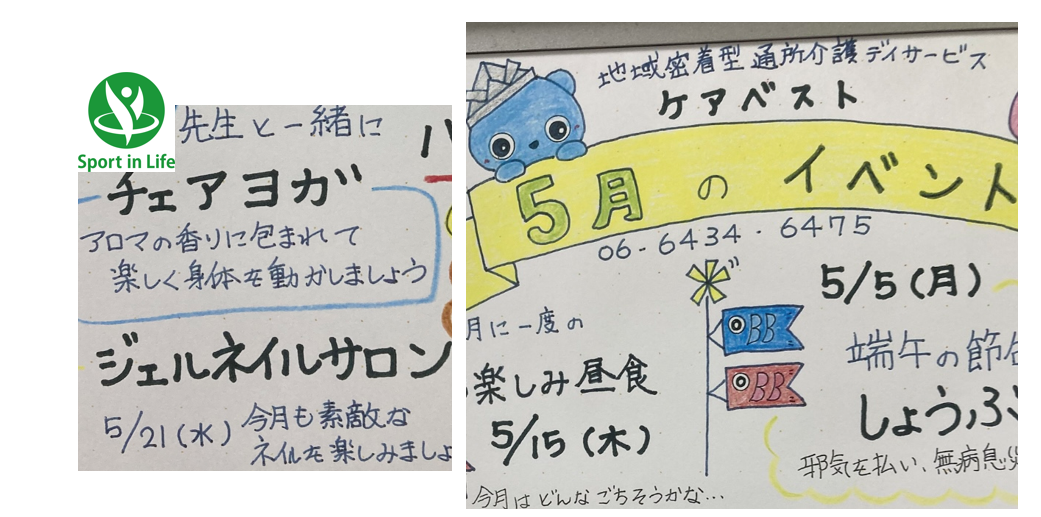 Sport in Life
先生と一緒に
チェアヨガ
アロマの香りに包まれて
楽しく身体を動かしましょう
ジェルネイルサロン
5/21(水)
今月も素敵な
ネイルを楽しみましょ
地域密着型通所介護デイサービス
ケアベスト
5月のイベント
06-6434-6475
月に一度の
楽しみ昼食
5/15(木)
今月はどんなごちそうかな...
5/5(月)
BB
BB
端午の節
しょうぶ
邪気を払い、無病息